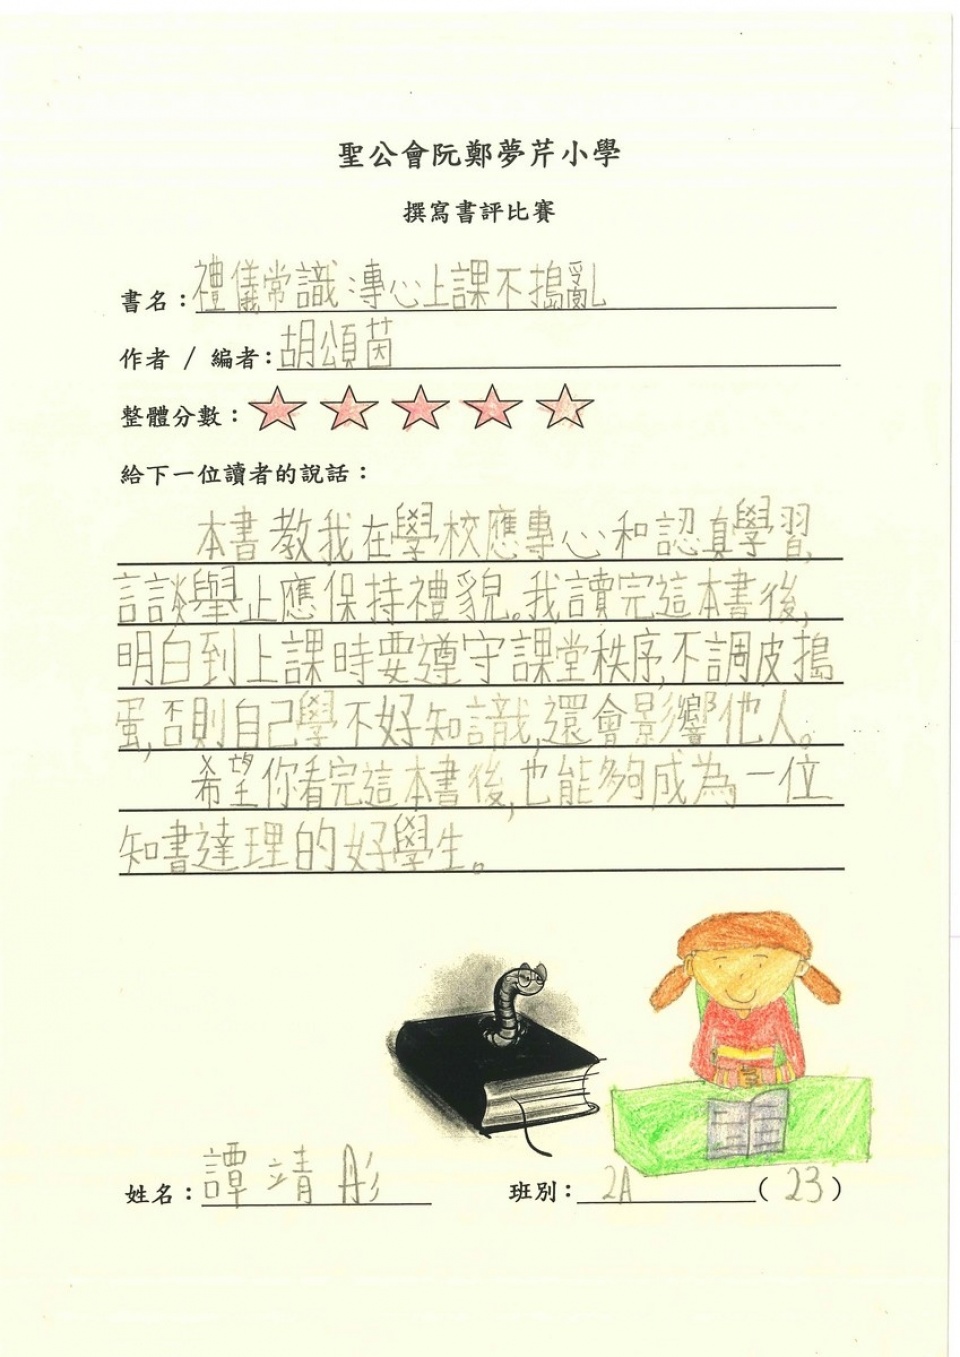 聖公會阮鄭夢芹小學
撰寫書評比賽
書名：禮儀常識：專心上課不搗亂
作者 / 編者：胡頌茵
整體分數：
給下一位讀者的說話：
本書教我在學校應專心和認真學習,
言談舉止應保持禮貌。我讀完這本書後,
明白到上課時要遵守課堂秩序,不調皮搗
蛋,否則自己學不好知識,還會影響他人。
希望你看完這本書後,也能夠成為一位
知書達理的好學生。
姓名：譚靖彤
班別：2A (23)